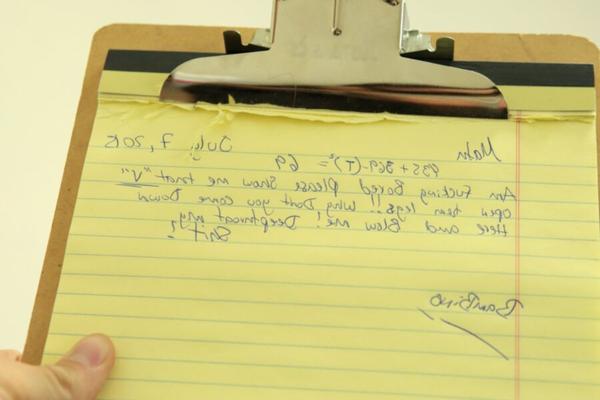 July, 7,
= 69
Am Fucking Bored please show me that "V"
open them legs!! Why Dont you come Down
Here and Blow me! Deepthroat my
Shit?
BamBino